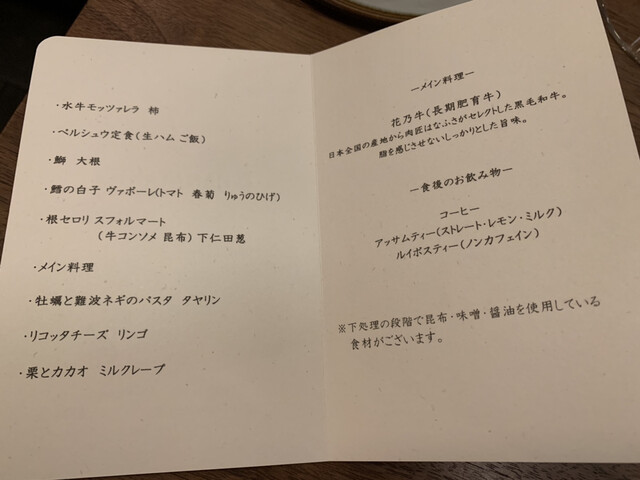 ・水牛モッツァレラ 柿
・ペルシュウ定食(生ハム ご飯)
・鰤 大根
・鱈の白子 ヴァポーレ(トマト 春菊 りゅうのひげ)
・根セロリ スフォルマート
(牛コンソメ 昆布) 下仁田葱
・メイン料理
・牡蠣と難波ネギのパスタ タヤリン
・リコッタチーズ リンゴ
・栗とカカオ ミルクレープ
ーメイン料理ー
花乃牛(長期肥育牛)
日本全国の産地から肉匠はなふさがセレクトした黒毛和牛。
脂を感じさせないしっかりとした旨味。
ー食後のお飲み物ー
コーヒー
アッサムティー(ストレート・レモン・ミルク)
ルイボスティー(ノンカフェイン)
※下処理の段階で昆布・味噌・醤油を使用している
食材がございます。